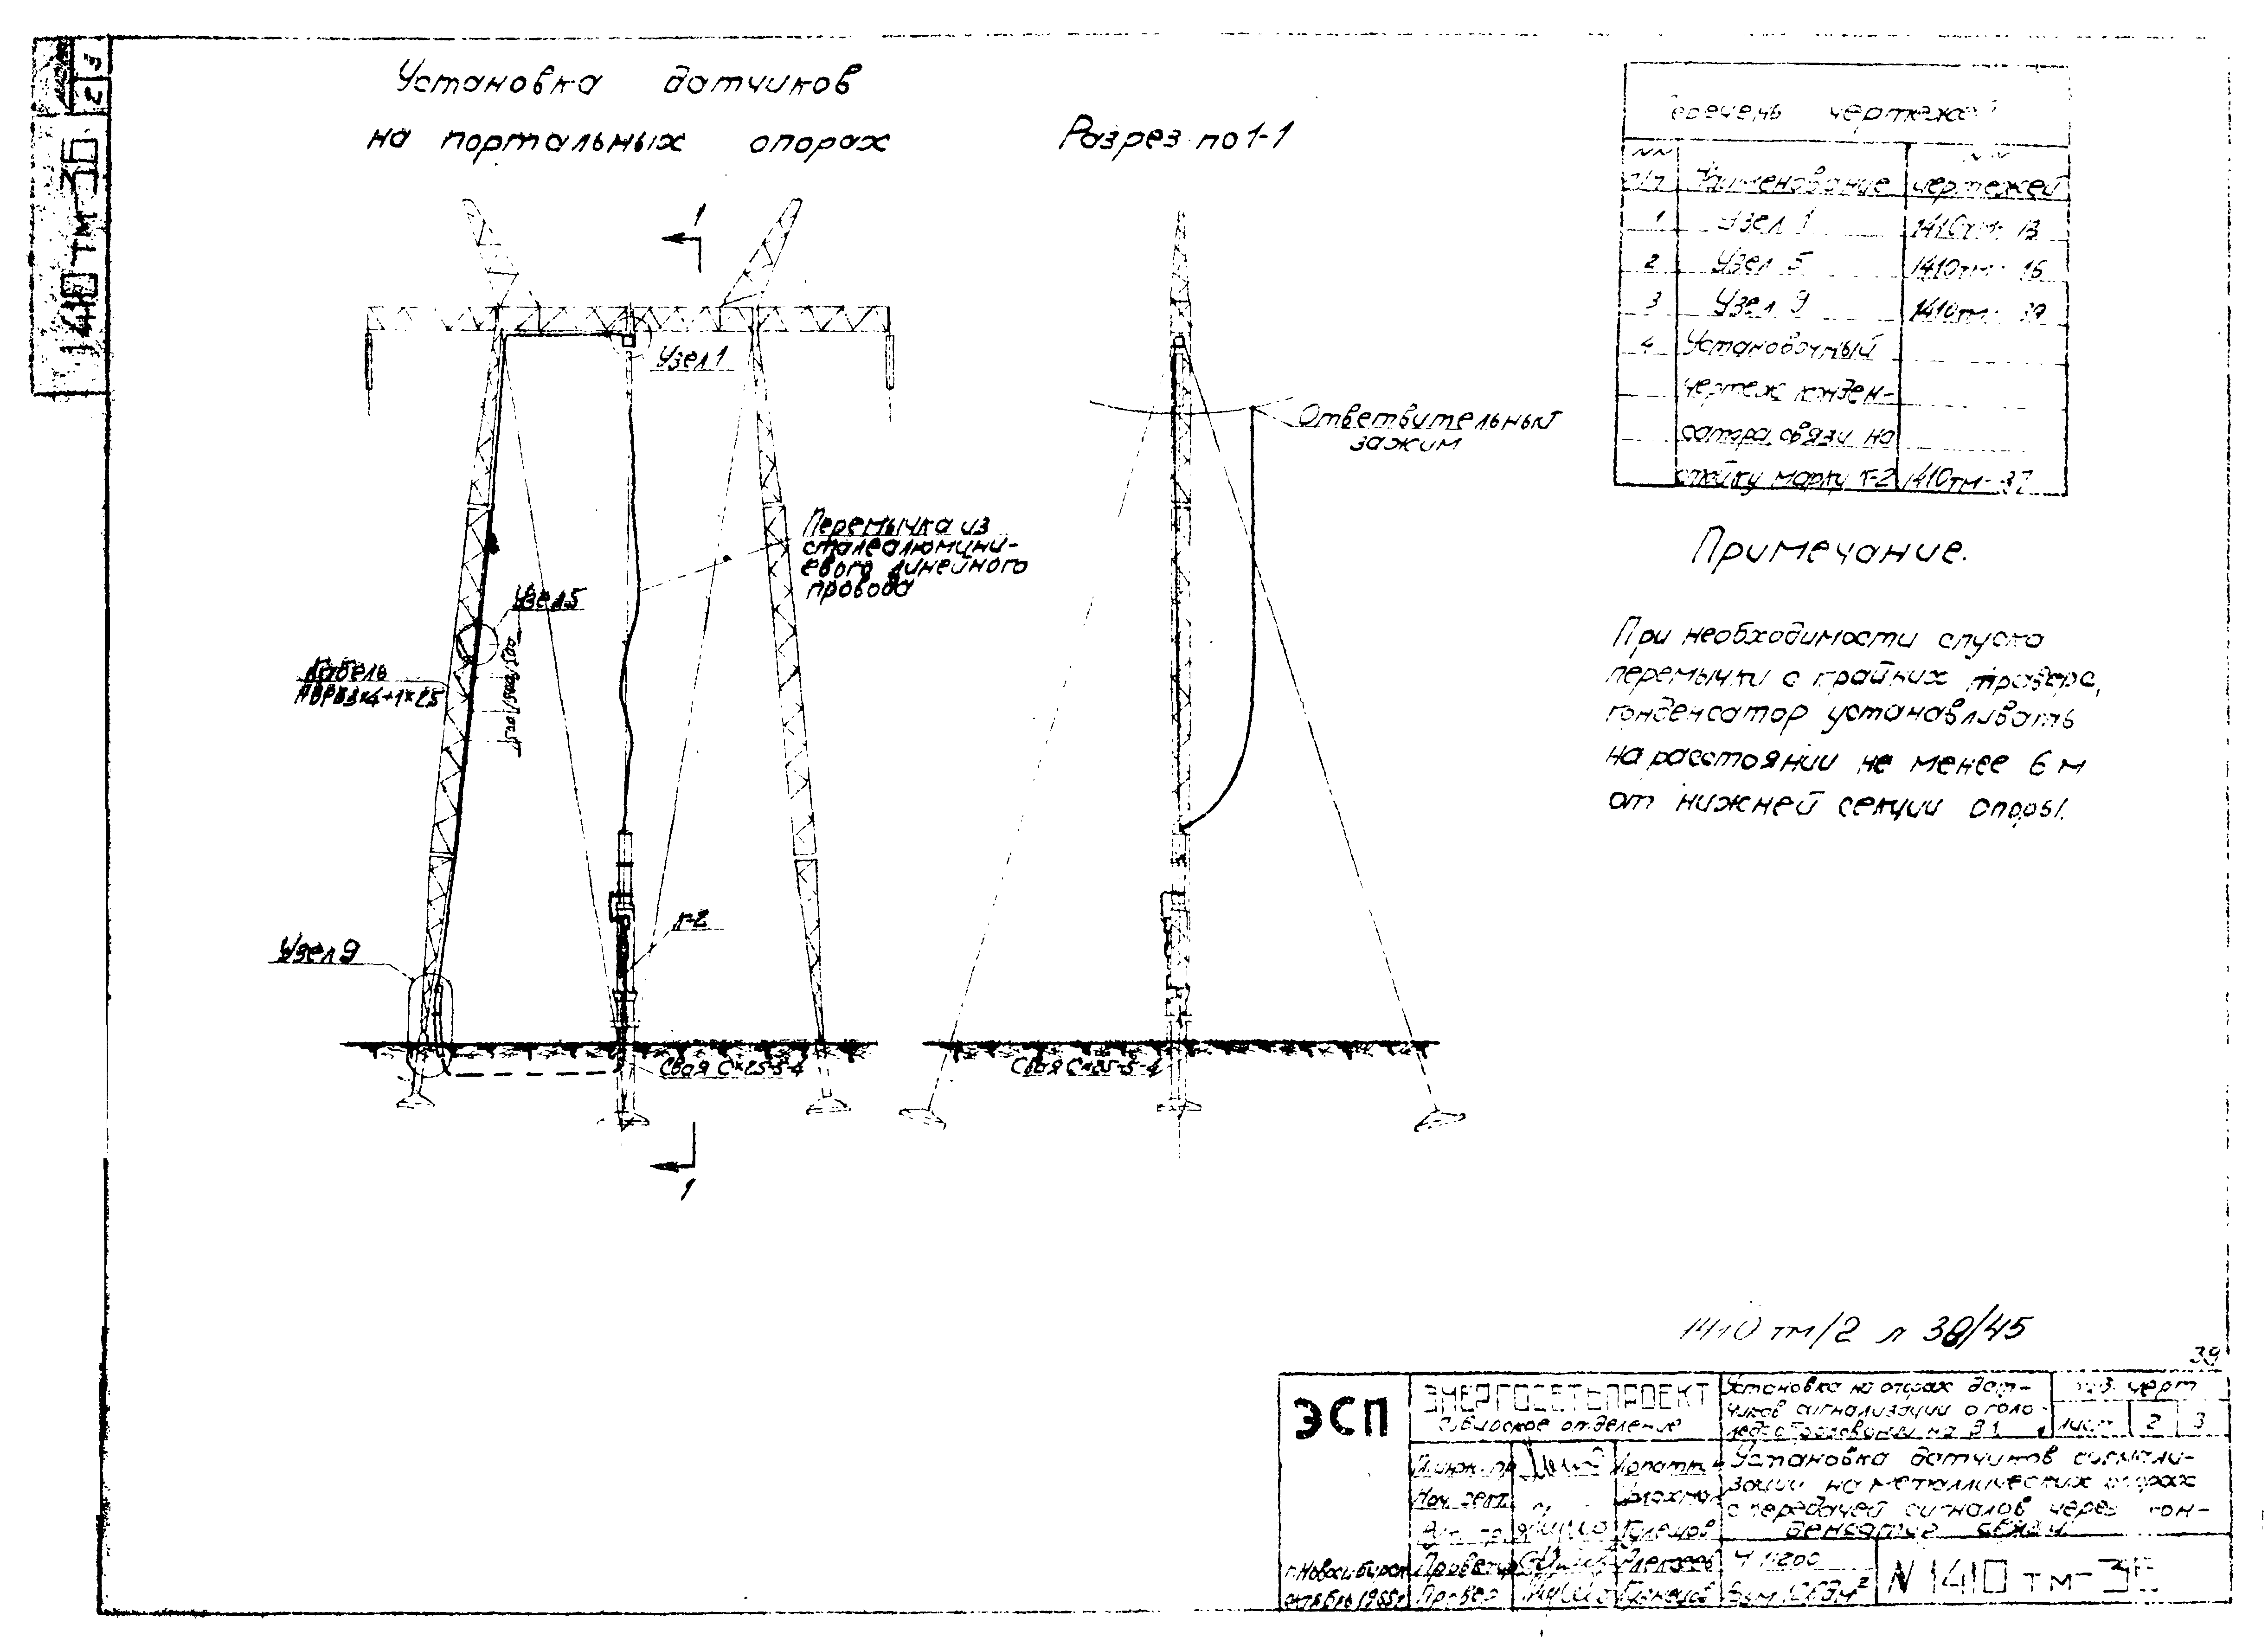 1410 тм-36
2 3
Установка датчиков
на портальных опорах
Разрез по 1-1
1
Узел 1
Ответвительный
зажим
Перемычка из
сталеалюмини-
евого линейного
провода
Узел 5
Кабель
АВРВ3×4+1×2,5
к-2
Узел 9
Свая С×25-5-4
Свая С×25-5-4
1
чертежей
NN
п/п Наименование чертежей
1 Узел 1 1410тм- 13
2 Узел 5 1410тм- 16
3 Узел 9 1410тм- 39
4 Установочный
чертеж конден-
сатора связи на
стойку марки к-2 1410тм-37
Примечание.
При необходимости спуска
перемычки с крайних
конденсатор устанавливать
на расстоянии не менее 6 м
от нижней секции опоры.
1410 тм/2 л 38/45
39
ЭСП
ЭНЕРГОСЕТЬПРОЕКТ
Сибирское отделение
Установка на опорах дат-
чиков сигнализации о голо-
ледообразовании на ВЛ
черт
лист 2 3
Установка датчиков сигнали-
зации на металлических опорах
с передачей сигналов через кон-
денсатор связи
г. Новосибирск
октябрь 1965г
Провер Кузнецов
М 1:200
N 1410 тм-36